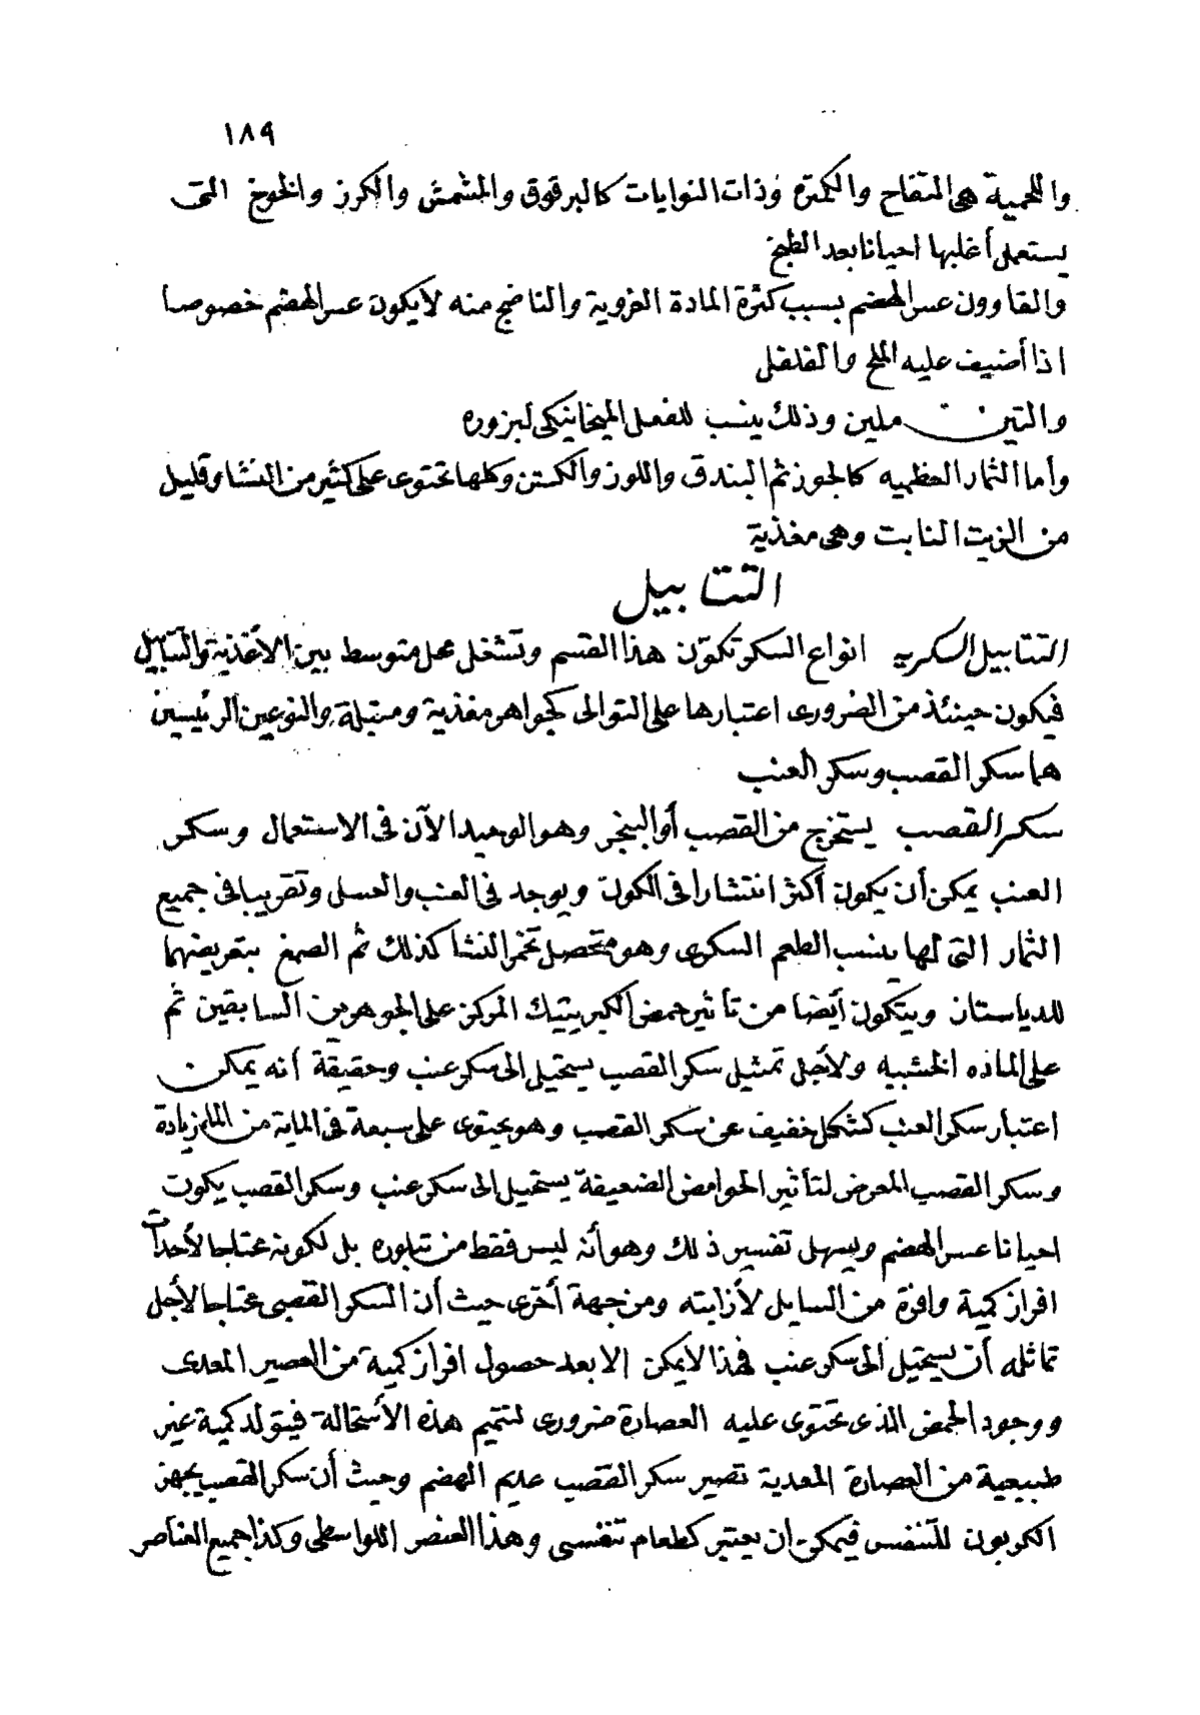 ١٨٩
واللحمية هى التفاح والكمترة وذات النوايات كالبرقوق والمشمش والكرز والخوخ التى
يستعمل أغلبها احيانا بعد الطبخ
والقاوون عسر الهضم بسبب كثرة المادة الغروية والناضج منه لا يكون عسر الهضم خصوصا
اذا أضيف عليه الملح والفلفل
والتين ملين وذلك ينسب للفعل الميخانيكى لبزوره
وأما الثمار العظميه كالجوز ثم البندق واللوز والكستن وكلها تحتوى على كثير من النشا وقليل
من الزيت الثابت وهى مغذية
التتابيل
التتابيل السكريه انواع السكر تكوّن هذا القسم وتشغل محل متوسط بين الأغذية والتتابيل
فيكون حينئذ من الضرورى اعتبارها على التوالى كجواهر مغذية ومتبلة والنوعين الرئيسين
هما سكر القصب وسكر العنب
سكر القصب يستخرج من القصب أو البنجر وهو الوحيد الآن فى الاستعمال وسكر
العنب يمكن أن يكون أكثر انتشارا فى الكون ويوجد فى العنب والعسل وتقريبا فى جميع
الثمار التى لها ينسب الطعم السكرى وهو متحصل تخمر النشا كذلك ثم الصمغ بتعريضهما
للدياستاز ويتكون أيضا من تأثير حمض الكبريتيك المركز على الجوهرين السابقين ثم
على الماده الخشبيه ولأجل تمثيل سكر القصب يستحيل الى سكر عنب وحقيقة أنه يمكن
اعتبار سكر العنب كشكل خفيف عن سكر القصب وهو يحتوى على سبعة فى الماية من الماء زيادة
وسكر القصب المعرض لتأثير الحوامض الضعيفة يستحيل الى سكر عنب وسكر القصب يكون
احيانا عسر الهضم ويسهل تفسير ذلك وهو أنه ليس فقط من تبلوره بل لكونه محتاجا لأحداث
افراز كمية وافرة من السايل لأذابته ومن جهة أخرى حيث أن السكر القصبى محتاجا لأجل
تماثله أن يستحيل الى سكر عنب فهذا لا يمكن الا بعد حصول افراز كمية من العصير المعدى
ووجود الحمض الذى تحتوى عليه العصارة ضرورى لتتميم هذه الأستحالة فيتولد كمية غير
طبيعية من العصارة المعدية تصير سكر القصب عديم الهضم وحيث أن سكر القصب يجهز
الكربون للتنفس فيمكن ان يعتبر كطعام تنفسى وهذا العنصر اللواسطى وكذا جميع العناصر